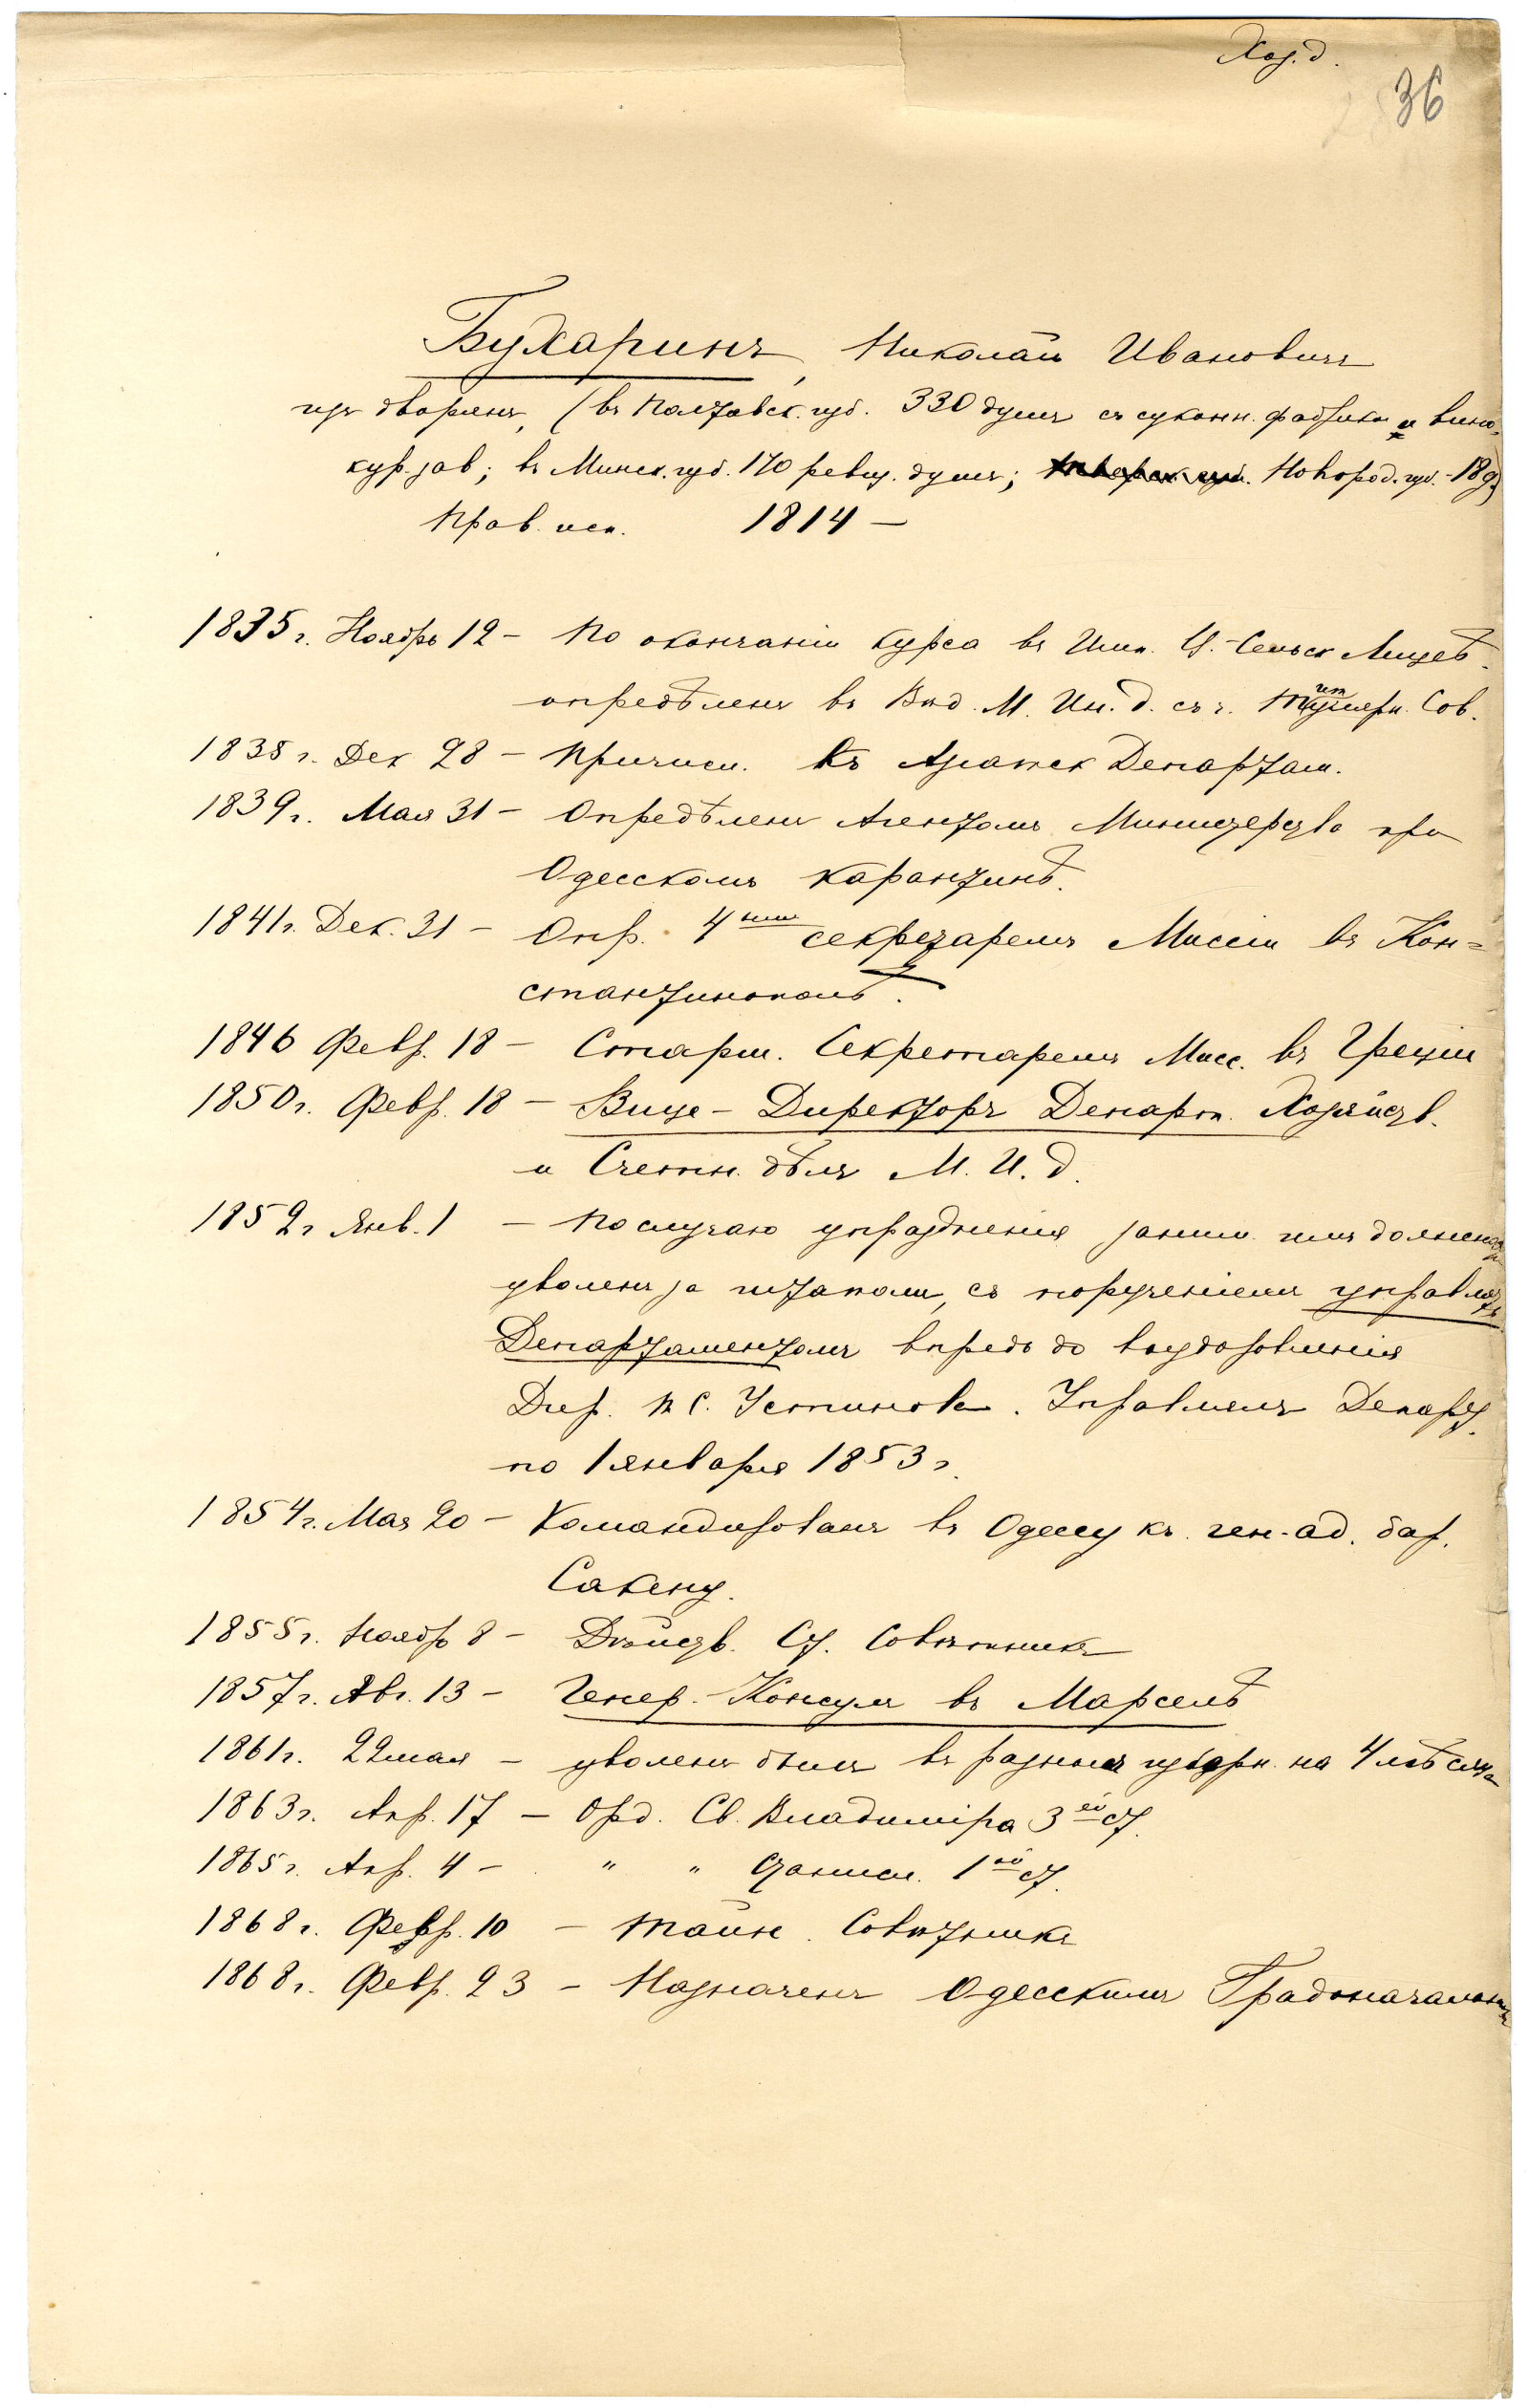 Хоз. д.
36
Бухаринъ, Николай Ивановичъ
изъ дворянъ, (въ Полтавск. губ. 330 душъ съ суконн. фабрик. и вино-
кур. зав; въ Минск. губ. 170 ревиз. душъ; Новгород. губ. - 18 д)
Прав. исп. 1814 —
1835 г. Ноябрь 12 - По окончаніи курса въ Имп. Ц.-Сельск Лицеѣ
опредѣленъ въ Вѣд. М. Ин. д. съ ч. Титулярн. Сов.
1838 г. Дек 28 - Причисл. къ Азіатск Департам.
1839 г. Мая 31 - Опредѣленъ Агентомъ Министерства при
Одесскомъ карантинѣ.
1841 г. Дек. 31 - Опр. 4ымъ секретаремъ Миссіи въ Кон=
стантинополѣ.
1846 Февр. 18 - Старш. Секретаремъ Мисс. въ Греціи
1850 г. Февр. 18 - Вице-Директоръ Департ. Хозяйств.
и Счетн. дѣлъ М. И. д.
1852 г Янв. 1 - По случаю упраздненія заним. имъ должности
уволенъ за штатомъ, съ порученіемъ управлять
Департаментомъ впредь до выздоровленія
Дир. П С. Устинова. Управлялъ Департ.
по 1 января 1853 г.
1854 г. Мая 20 - Командированъ въ Одессу къ ген.-ад. бар.
Сакену.
1855 г. Ноябр 8 - Дѣйств. Ст. Совѣтникъ
1857 г. Авг. 13 - Генер.-Консулъ въ Марселѣ
1861 г. 22 мая - уволенъ былъ въ разныя губерн. на 4 мѣсяца
1863 г. Апр. 17 - Орд. Св. Владиміра 3ей ст.
1865 г. Апр. 4 - " " Станисл. 1ой ст.
1868 г. Февр. 10 - Тайн. Совѣтникъ
1868 г. Февр. 23 - Назначенъ Одесскимъ Градоначальник